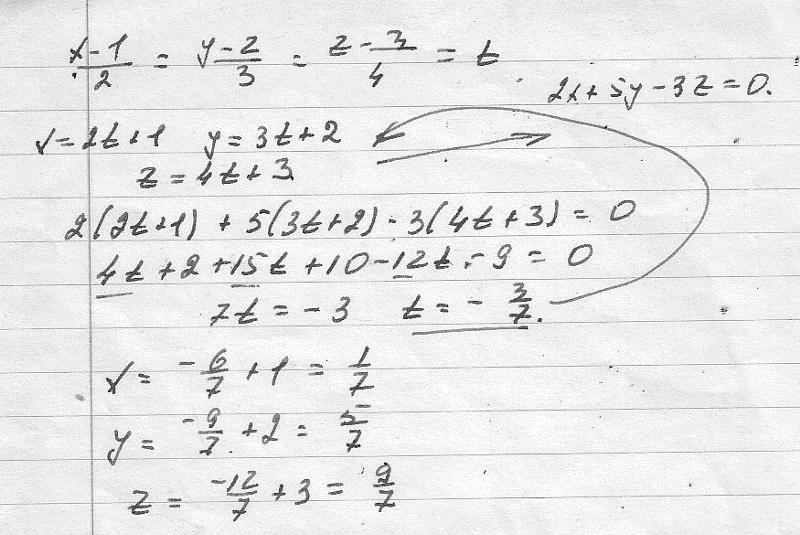 (x-1)/2 = (y-2)/3 = (z-3)/4 = t
2x+5y-3z=0.
x=2t+1 y=3t+2
z=4t+3
2(2t+1)+5(3t+2)-3(4t+3)=0
4t+2+15t+10-12t-9=0
7t=-3 t=-3/7.
x=-6/7+1=1/7
y=-9/7+2=5/7
z=-12/7+3=9/7